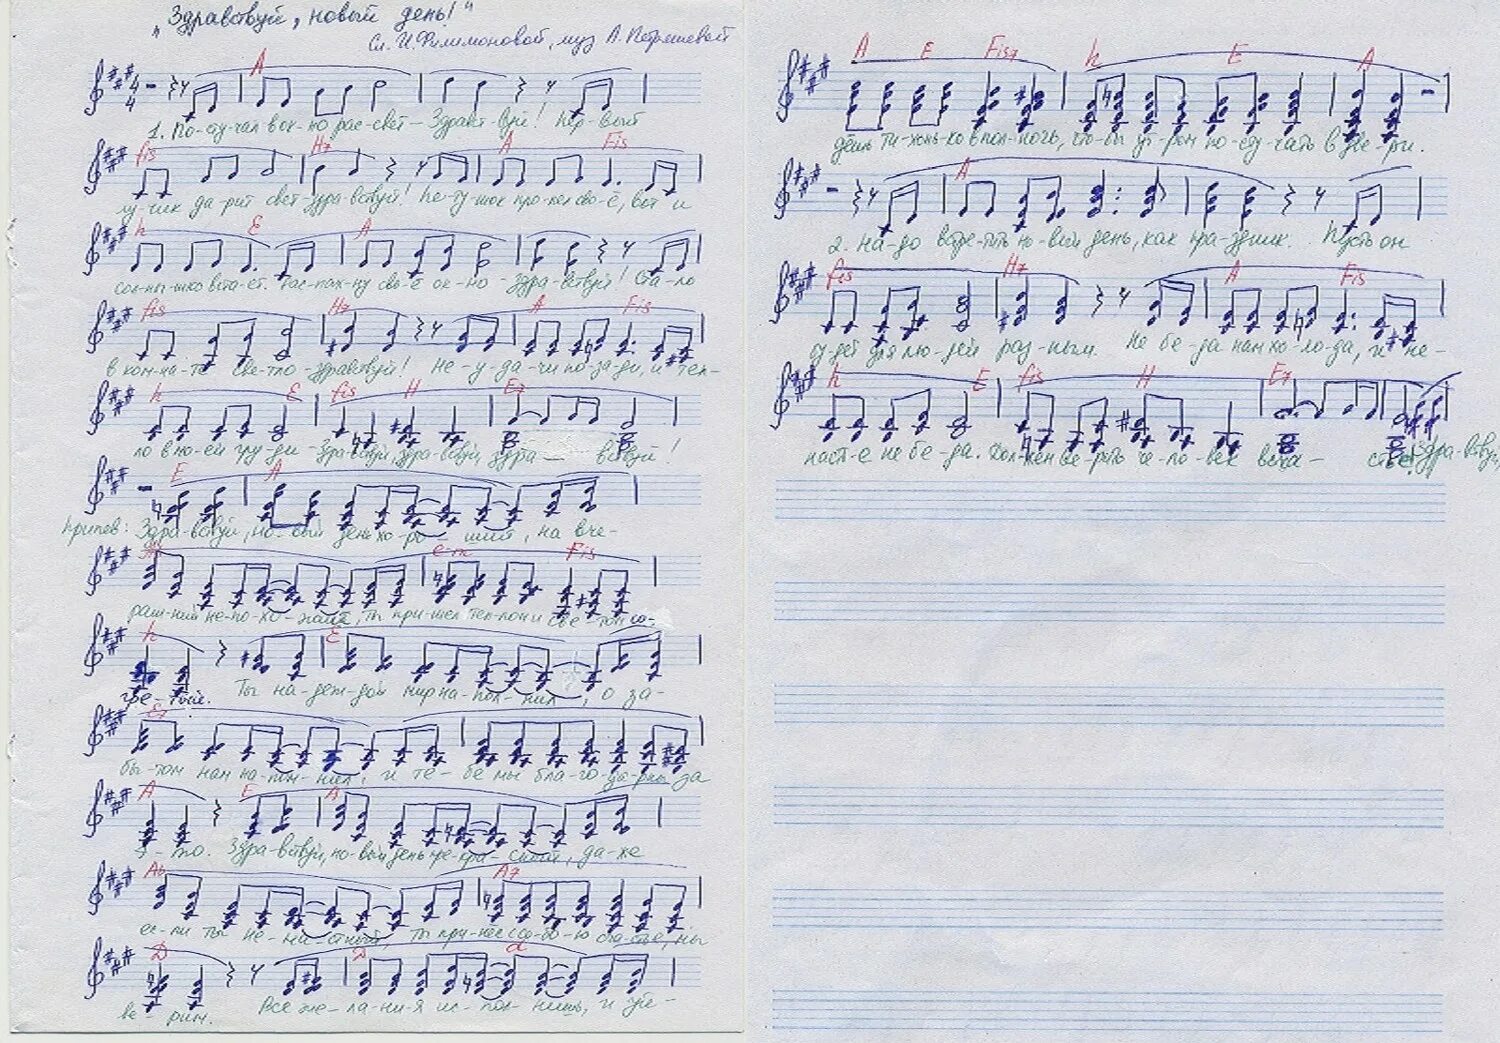 "Здравствуй, новый день!"
Сл. И. Филимоновой, муз А. Петряшевой
A
1. По-сту-чал в ок-но рас-свет - Здравст-вуй! Пер-вый
fis H7 A Fis
лу-чик да-рит свет-здра-вствуй! Пе-ту-шок про-пел сво-ё, вот и
h E A
сол-ны-шко вста-ёт. Рас-пах-ну сво-ё ок-но - здра-вствуй! Ста-ло
fis H7 A Fis
в ком-на-те све-тло-здравствуй! Не-у-да-чи по-за-ди, и теп-
h E fis H E7
ло в мо-ей гру-ди - здра-вствуй, здра-вствуй, здра- вствуй!
E A
Припев: Здра-вствуй, но-вый день хо-ро-ший, на вче-
e-m Fis
раш-ний не-по-хо-жий, ты при-шёл теп-лом и све-том со-
h E
гре-тый. Ты на-деж-дой мир на-пол-нил, о за-
E7
бы-том нам на-пом-нил, и те-бе мы бла-го-дарны за
A E A
э-то. Здра-вствуй, но-вый день пре-кра-сный, да-же
A7
ес-ли ты не-на-стный, ты при-нес с со-бо-ю счастье, мы
D D d
ве-рим. Все же-ла-ни-я ис-пол-нишь, и уй-
A E Fis7 h E A
дёшь ти-хонь-ко в пол-ночь, что-бы ут-ром по-сту-чать в две-ри.
A
2. На-до встре-тить но-вый день, как пра-здник. Пусть он
fis H7 A Fis
бу-дет для лю-дей раз-ным. Не бе-да нам хо-ло-да, и не-
h E fis H E7
наст-е не бе-да. Дол-жен ве-рить че-ло-век в сча- стье! Здра-вствуй,